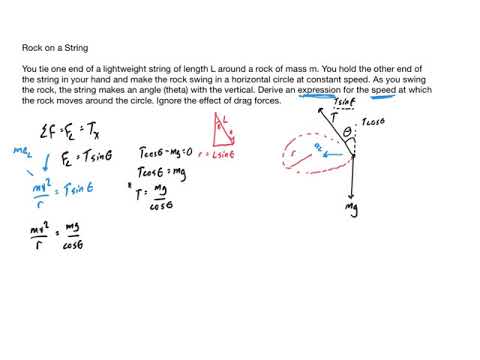 Rock on a String
You tie one end of a lightweight string of length L around a rock of mass m. You hold the other end of
the string in your hand and make the rock swing in a horizontal circle at constant speed. As you swing
the rock, the string makes an angle (theta) with the vertical. Derive an expression for the speed at which
the rock moves around the circle. Ignore the effect of drag forces.
Tsinθ
T
Tcosθ
θ
r
mg
ΣF = Fc = Tx
mac
Fc = Tsinθ
mv²/r = Tsinθ
mv²/r = mg/cosθ
Tcosθ - mg = 0
Tcosθ = mg
* T = mg/cosθ
L
θ
r
r = Lsinθ